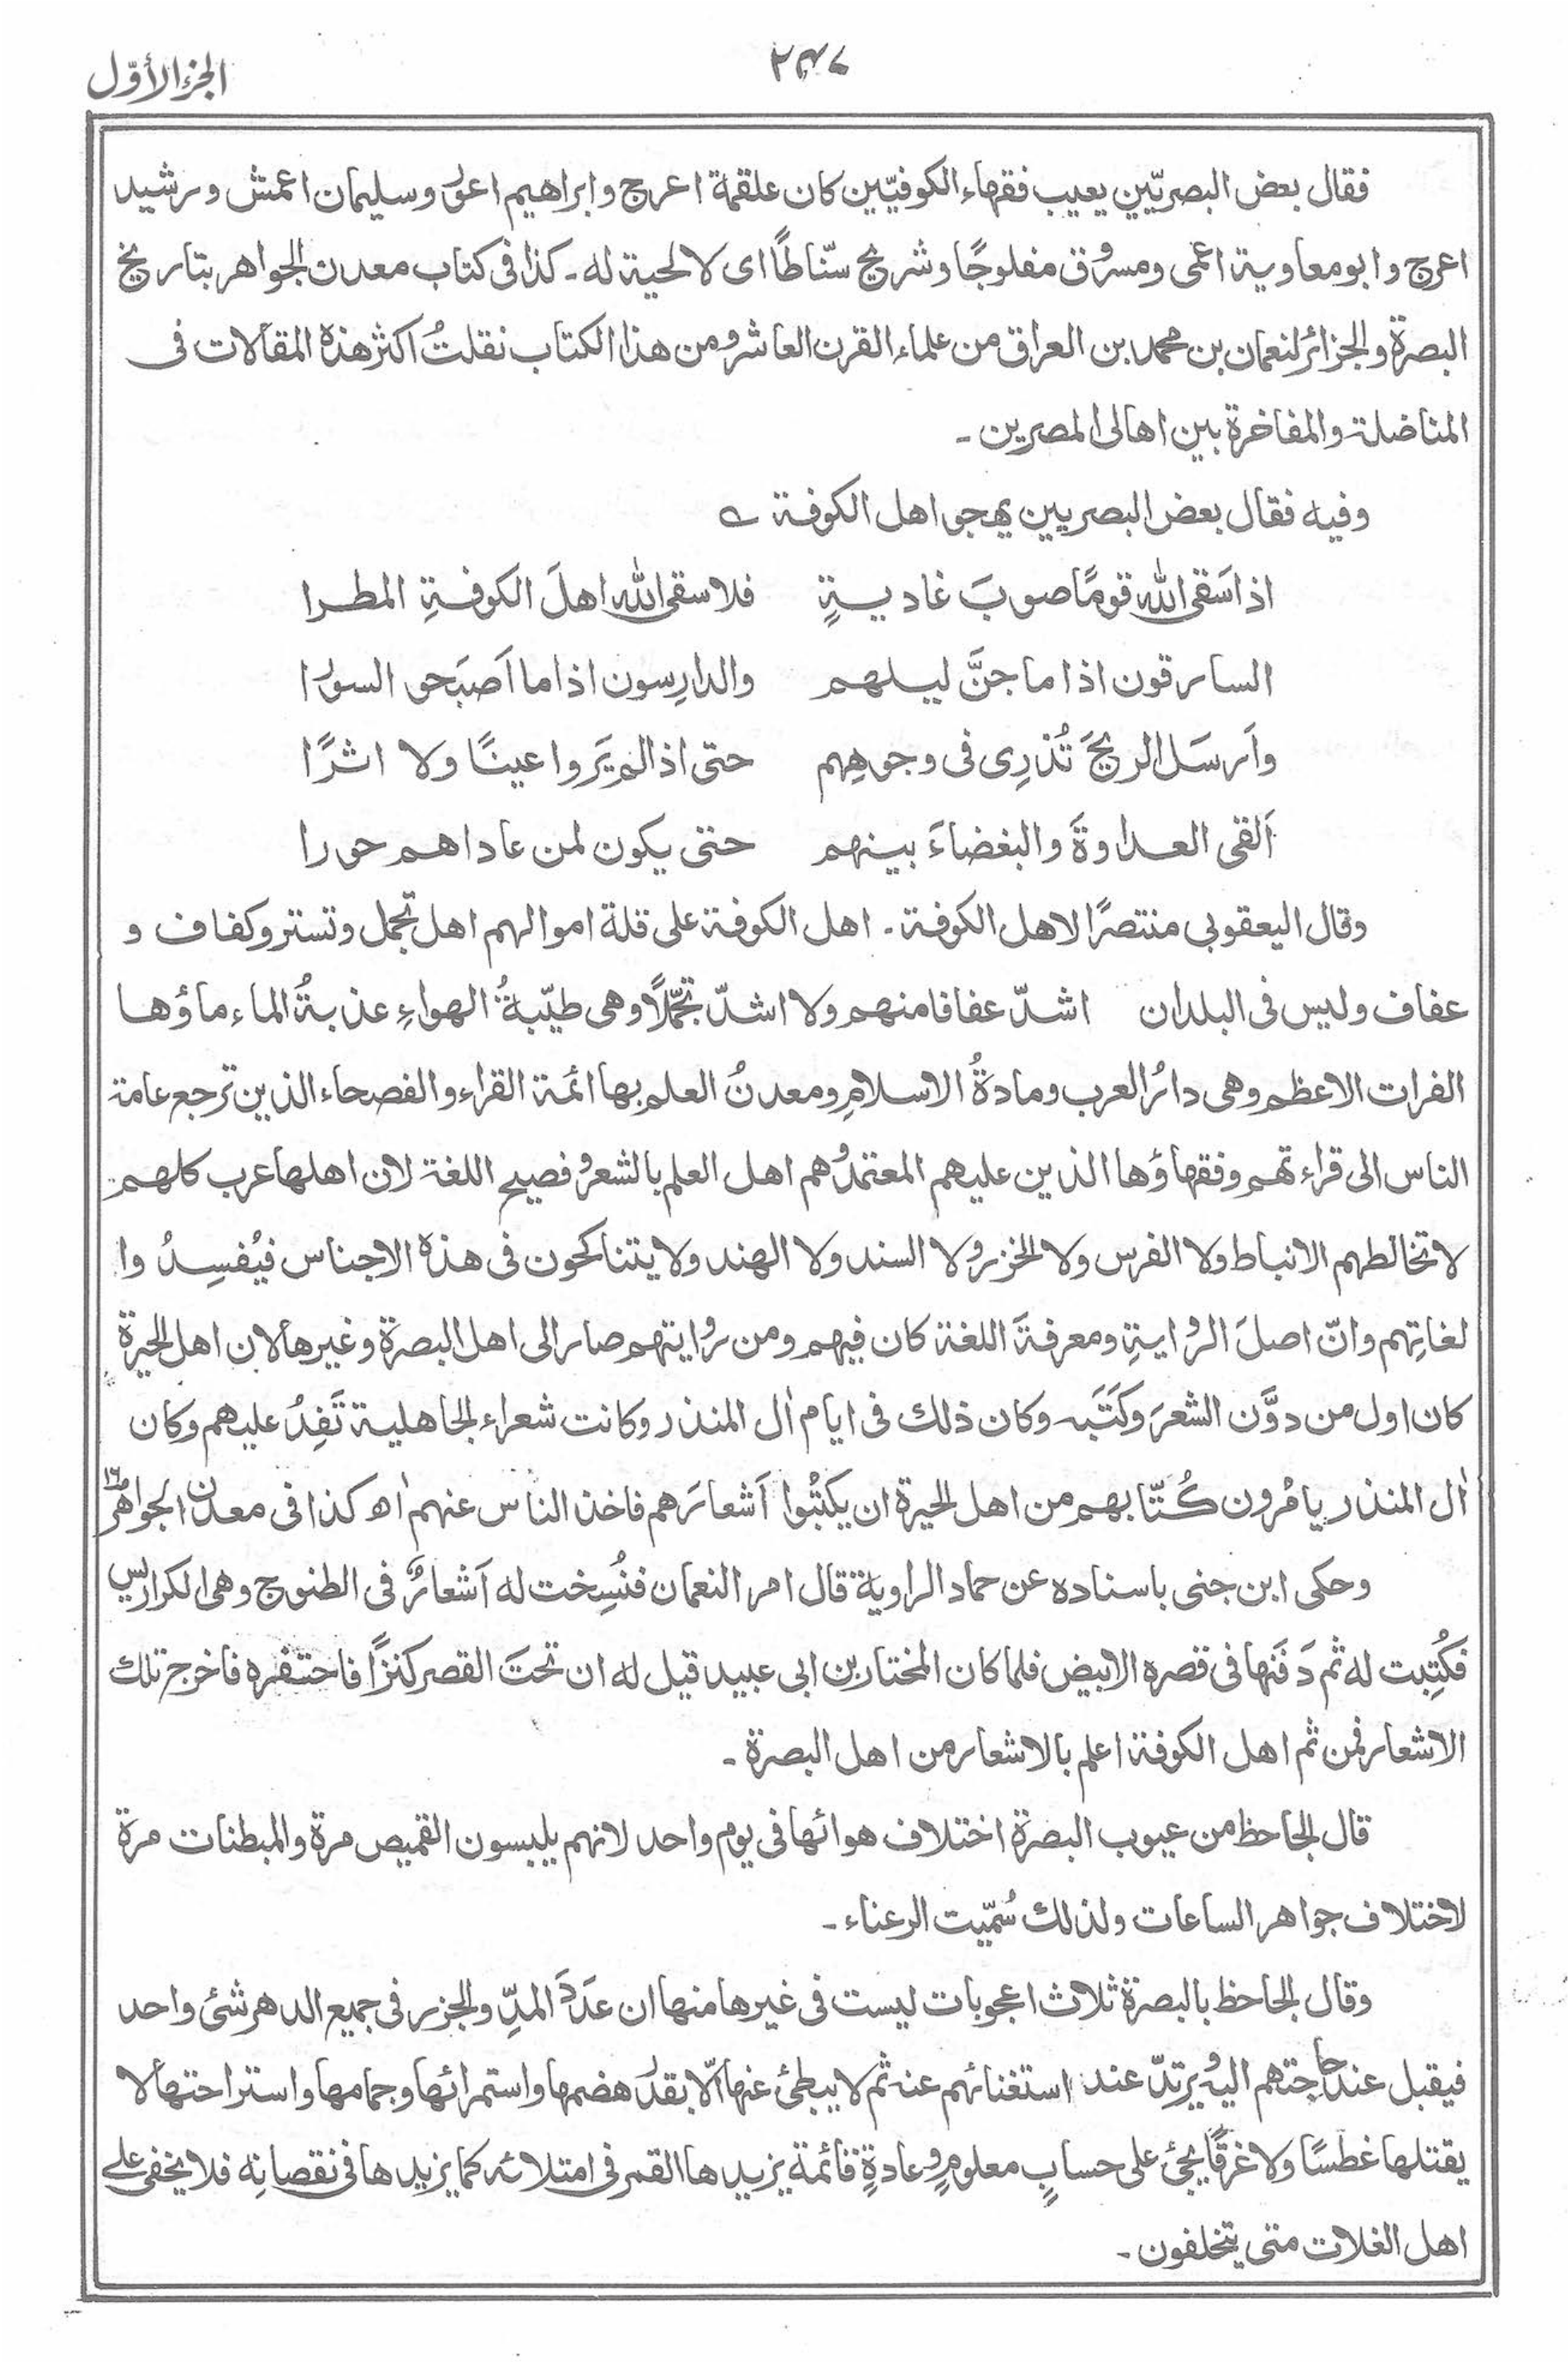 الجزء الأوّل
٢٤٧
فقال بعض البصريّين يعيب فقهاء الكوفيّين كان علقمة اعرج وابراهيم اعور وسليمان اعمش ورشيد
اعرج وابومعاوية اعمى ومسروق مفلوجًا وشريح سنّاطًا اى لا لحية له ـ كذا فى كتاب معدن الجواهر بتاريخ
البصرة والجزائر لنعمان بن محمد بن العراق من علماء القرن العاشر ومن هذا الكتاب نقلتُ اكثر هذه المقالات فى
المناضلة والمفاخرة بين اهالى المصرين ـ
وفيه فقال بعض البصريين يهجو اهل الكوفة ؎
اذا سَقى الله قومًا صوبَ غاديةٍ فلا سقى الله اهلَ الكوفةِ المطرا
السارقون اذا ما جنَّ ليلهم والدارِسون اذا ما اَصبَحو السورا
واَرسَل الريحَ تُذرِى فى وجوهِهم حتى اذا لم يَروا عينًا ولا اثرًا
اَلقى العداوةَ والبغضاءَ بينهم حتى يكون لمن عاداهم حورا
وقال اليعقوبى منتصرًا لاهل الكوفة ـ اهل الكوفة على قلة اموالهم اهل تجمل وتستر وكفاف و
عفاف وليس فى البلدان اشدّ عفافا منهم ولا اشدّ تجمّلًا وهى طيّبةُ الهواءِ عذبةُ الماء ماؤها
الفرات الاعظم وهى دارُ العرب ومادةُ الاسلامِ ومعدنُ العلم بها ائمة القراء والفصحاء الذين ترجع عامة
الناس الى قراءتهم وفقهاؤها الذين عليهم المعتمدُ وهم اهل العلم بالشعر وفصيح اللغة لان اهلها عرب كلهم
لا تخالطهم الانباط ولا الفرس ولا الخزر ولا السند ولا الهند ولا يتناكحون فى هذه الاجناس فيُفسِدُ وا
لغاتِهم وانّ اصلَ الروايةِ ومعرفةَ اللغة كان فيهم ومن روايتهم صار الى اهل البصرة وغيرها لان اهل الحيرة
كان اول من دوَّن الشعرَ وكَتَبَه وكان ذلك فى ايام اٰل المنذر وكانت شعراء الجاهلية تَفِدُ عليهم وكان
اٰل المنذر يامُرون كُتّابهم من اهل الحيرة ان يكتبُوا اَشعارَهم فاخذ الناس عنهم اه كذا فى معدن الجواهر
وحكى ابن جنى باسناده عن حماد الراوية قال امر النعمان فنُسِخت له اَشعارٌ فى الطنوج وهى الكراريس
فكُتِبت له ثم دَفَنها فى قصره الابيض فلما كان المختار بن ابى عبيد قيل له ان تحتَ القصر كنزًا فاحتفره فاخرج تلك
الاشعار فمن ثم اهل الكوفة اعلم بالاشعار من اهل البصرة ـ
قال الجاحظ من عيوب البصرة اختلاف هوائها فى يوم واحد لانهم يلبسون القميص مرة والمبطنات مرة
لاختلاف جواهر الساعات ولذلك سُمّيت الرعناء ـ
وقال الجاحظ بالبصرة ثلاث اعجوبات ليست فى غيرها منها ان عَدَدَ المدِّ والجزر فى جميع الدهر شئ واحد
فيقبل عند حاجتهم اليه ويرتدّ عند استغنائهم عنه ثم لا يبطئ عنها الّا بقدر هضمها واستمرائها وجمامها واستراحتها لا
يقتلها غطسًا ولا غرقًا يجئ على حسابٍ معلومٍ وعادةٍ قائمة يزيدها القمر فى امتلائه كما يزيدها فى نقصانِه فلا يخفى على
اهل الغلات متى يتخلفون ـ